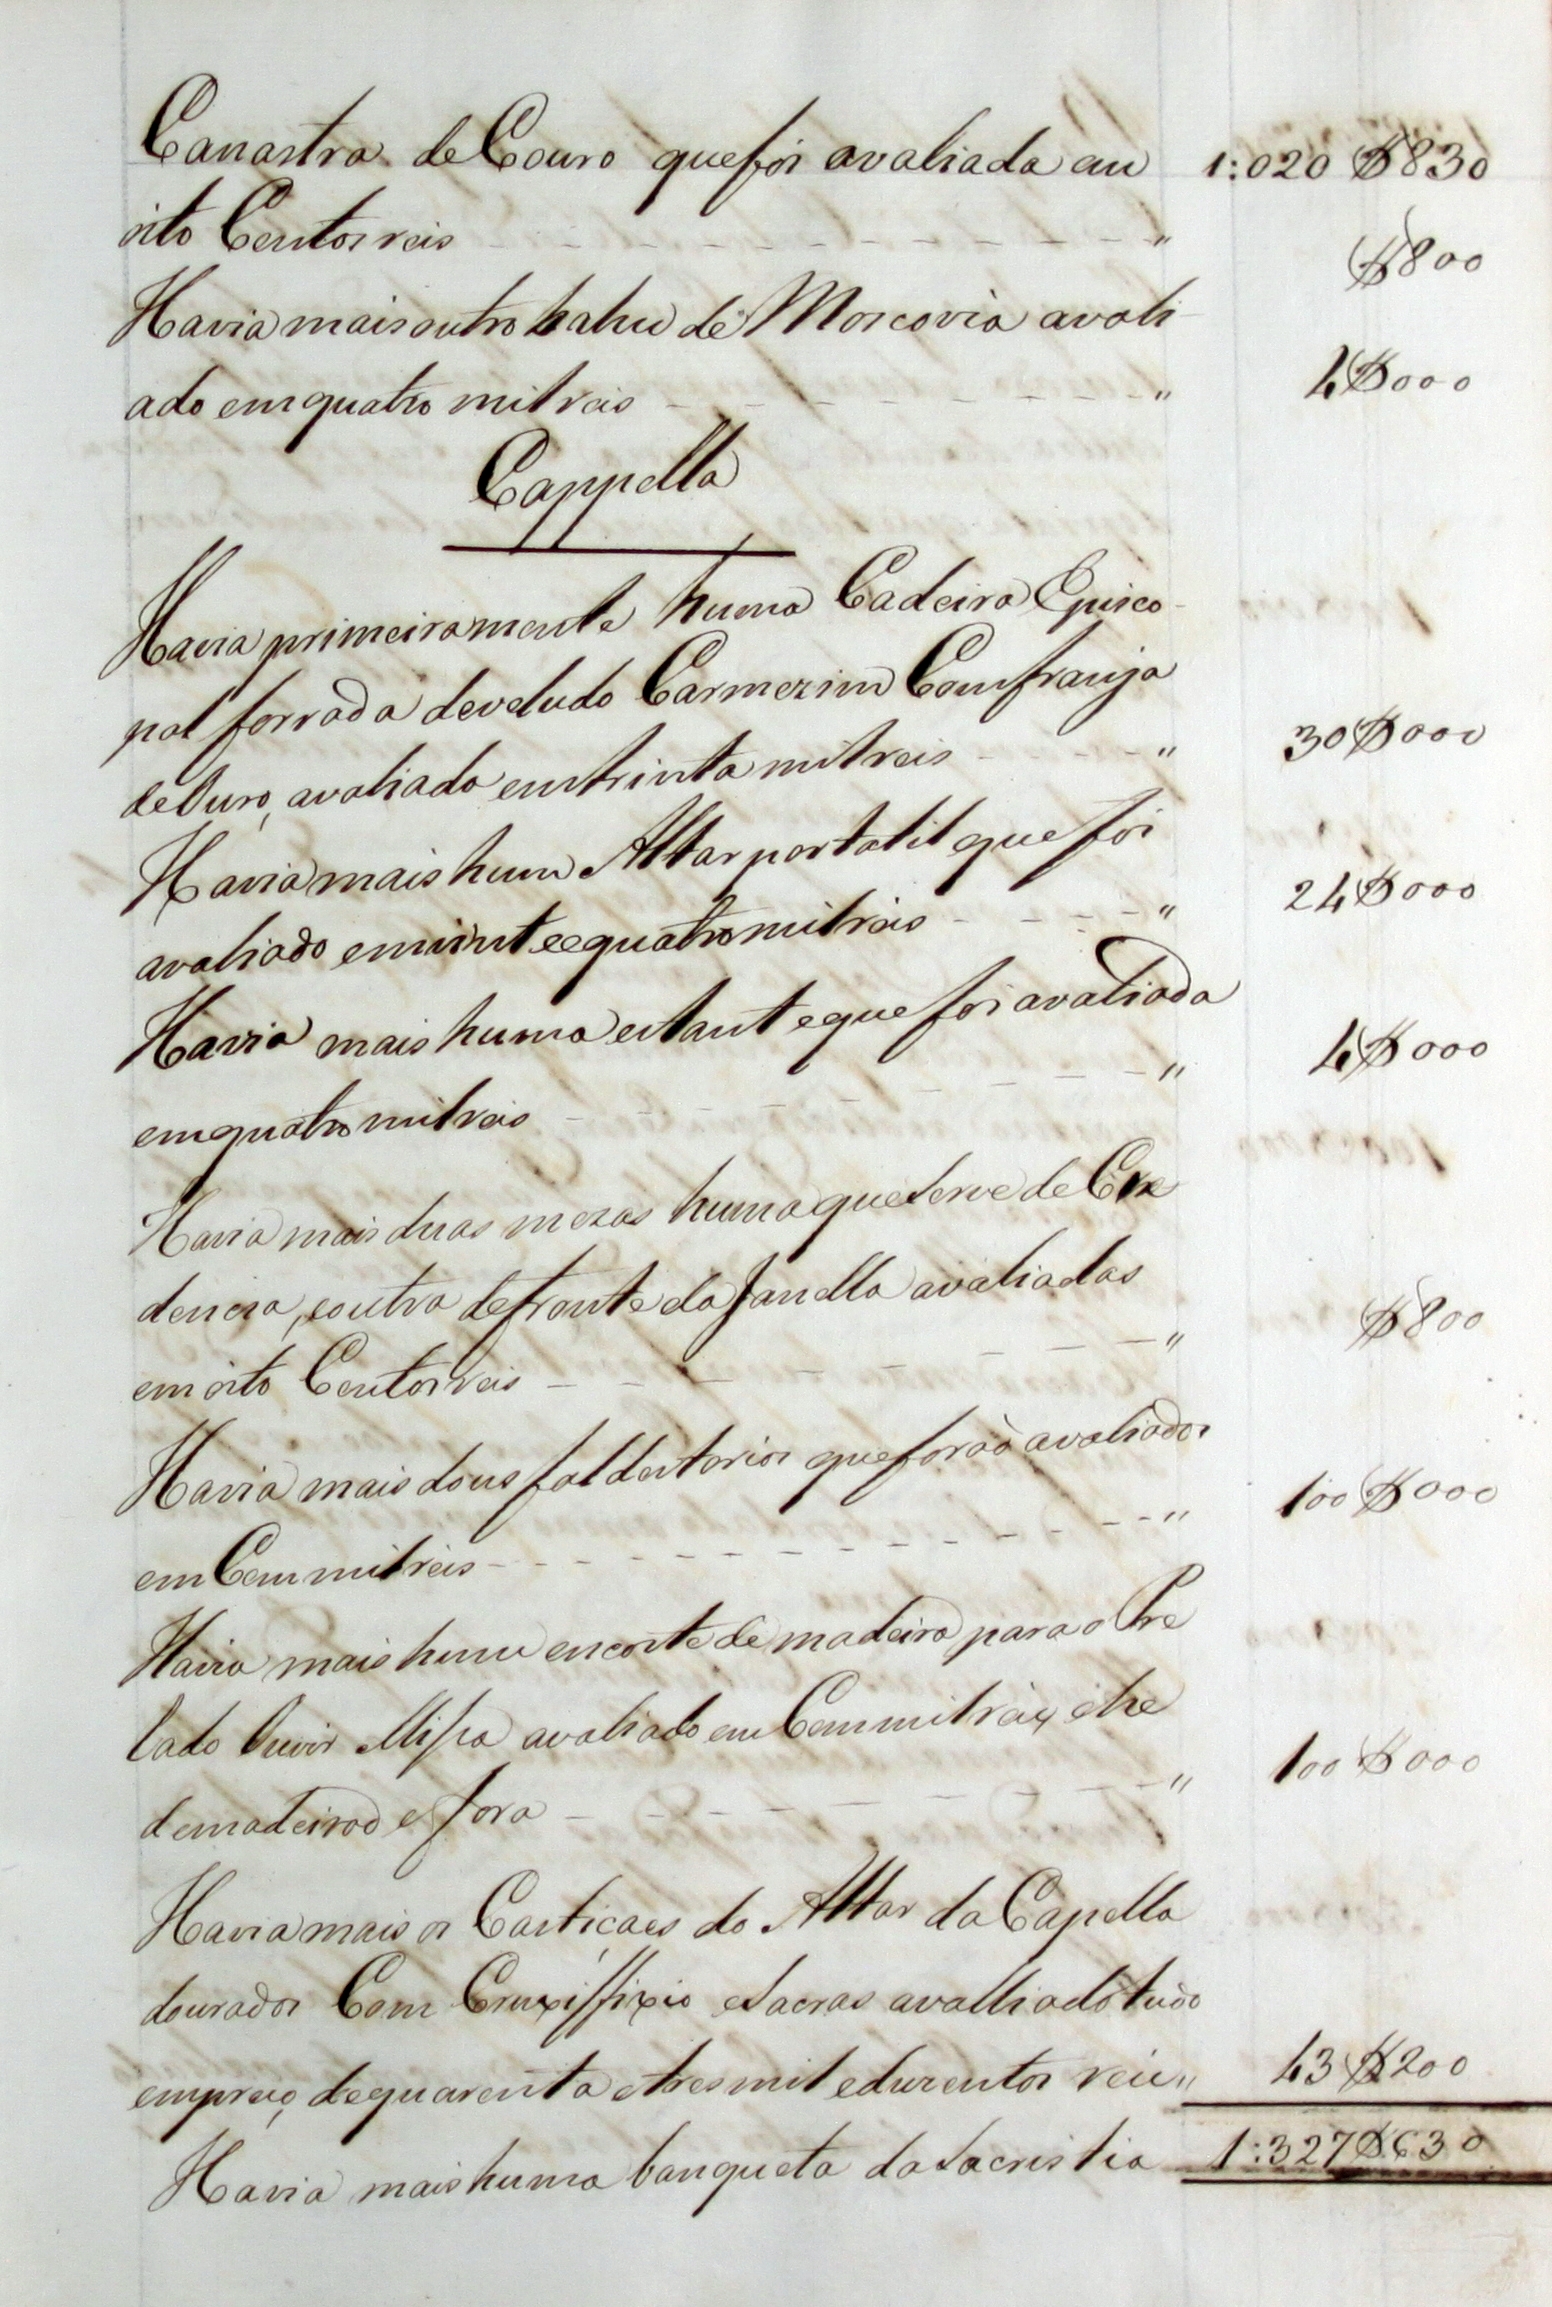 Canastra de Couro que foi avaliada em 1:020$830
oito Centos reis " $800
Havia mais outro bahu de Moscovia avali
ado em quatro mil reis " 4$000
Cappella
Havia primeiramente huma Cadeira Episco-
pal forrada de veludo Carmezim Com franja
de Ouro, avaliado em trinta mil reis " 30$000
Havia mais hum Altar portatil que foi
avaliado em vinte e quatro mil reis " 24$000
Havia mais huma estante que foi avaliada
em quatro mil reis " 4$000
Havia mais duas mezas huma que serve de Cre
dencia, e outra defronte da Janella avaliadas
em oito Centos reis " $800
Havia mais dous faldestorios que forão avaliados
em Cem mil reis " 100$000
Havia mais hum encoste de madeira para o Pre
lado Ouvir Missa avaliado em Cem mil reis, e he
de madeira de fora " 100$000
Havia mais os Casticaes do Altar da Capella
dourados Com Cruxiffixio e Sacras avalliado tudo
em preço de quarenta e tres mil e duzentos reis " 43$200
Havia mais huma banqueta da Sacristia 1:327$630